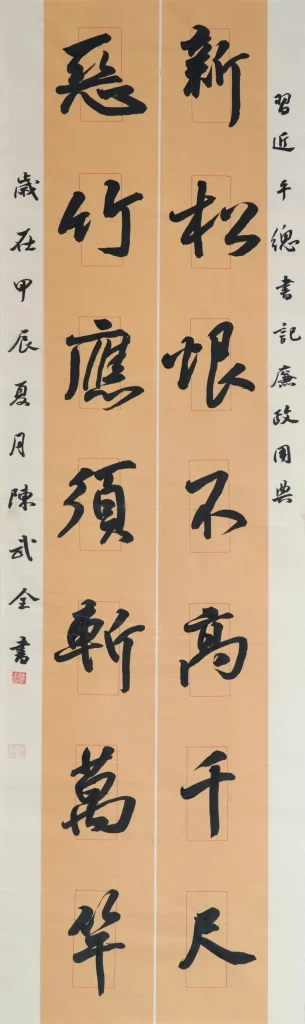 習近平總書記廉政用典
新松恨不高千尺
惡竹應須斬萬竿
歲在甲辰夏月陳武全書